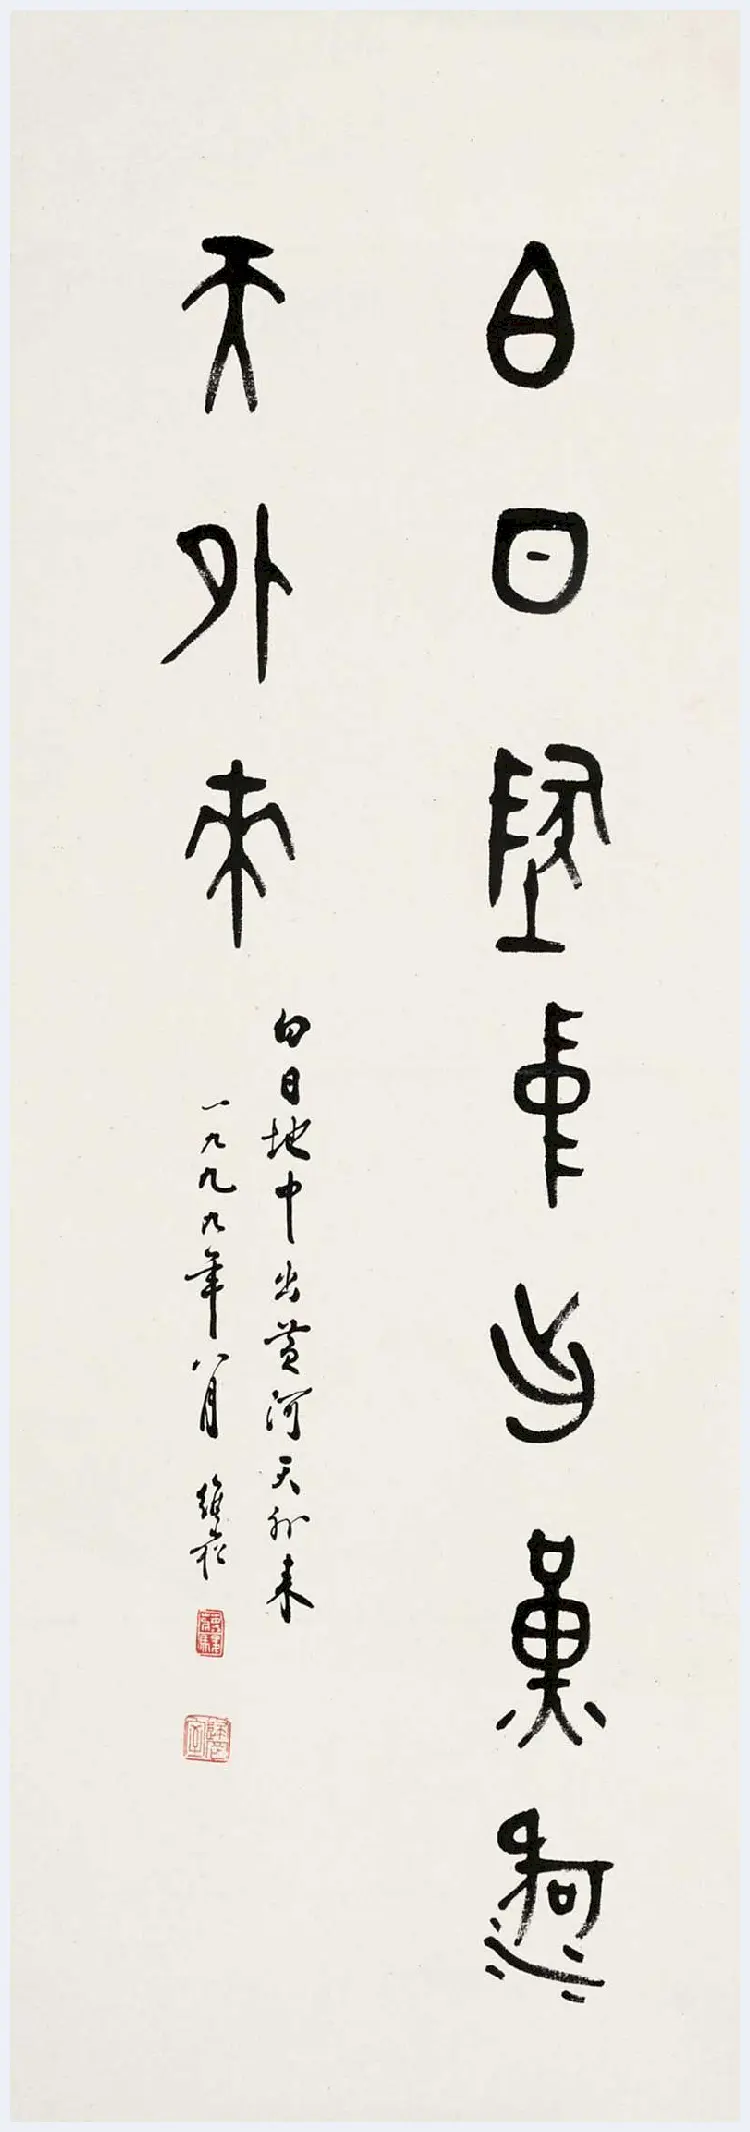 白日地中出黄河
天外来
白日地中出黄河天外来
一九九九年八月